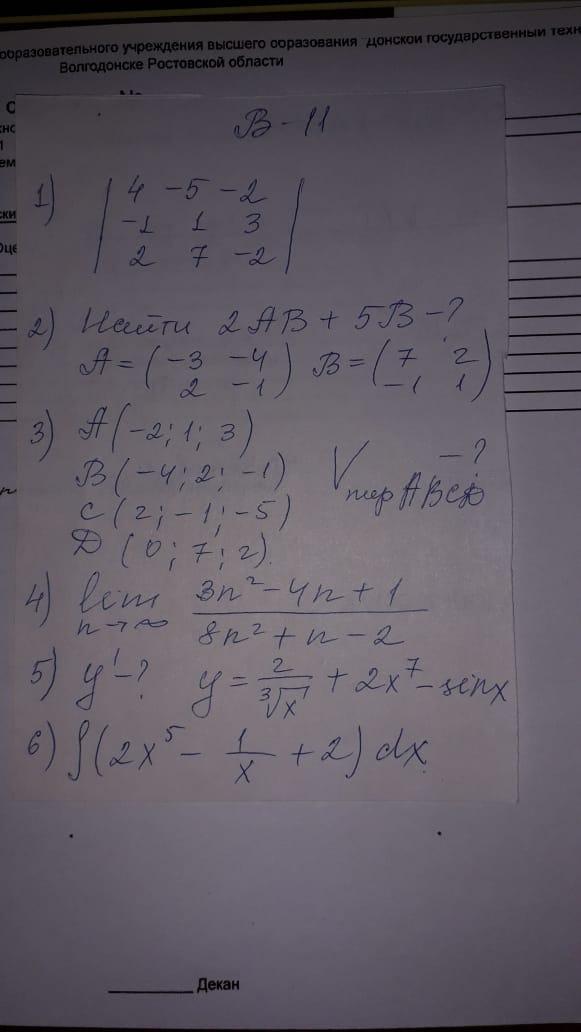 образовательного учреждения высшего образования "Донской государственный техн
Волгодонске Ростовской области
В - 11
1) | 4 -5 -2 |
-1 1 3
2 7 -2
2) Найти 2AB + 5B - ?
A = ( -3 -4 ) B = ( 7 2 )
2 -1 -1 1
3) A(-2; 1; 3)
B(-4; 2; -1) V пир ABCD - ?
C(2; -1; -5)
D(0; 7; 2).
4) lim 3n² - 4n + 1
n→∞ 8n² + n - 2
5) y' - ? y = 2/∛x + 2x⁷ - sinx
6) ∫(2x⁵ - 1/x + 2) dx.
Декан